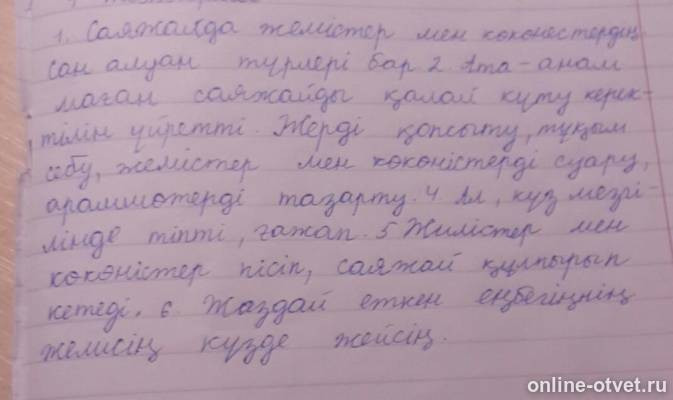 1. Саяжайда жемістер мен көкөнестердің
сан алуан түрлері бар 2 Ата-анам
маған саяжайды қалай күту керек-
тілін үйретті. Жерді қопсыту, тұқым
себу, жемістер мен көкөністерді суару,
арамшөтерді тазарту. 4. Ал, күз мезгі-
лінде тіпті, ғажап. 5 Жилістер мен
көкөністер пісіп, саяжай құлпырып
кетеді. 6. Жаздай еткен еңбегіңнің
желисің күзде жейсің.
online-otvet.ru